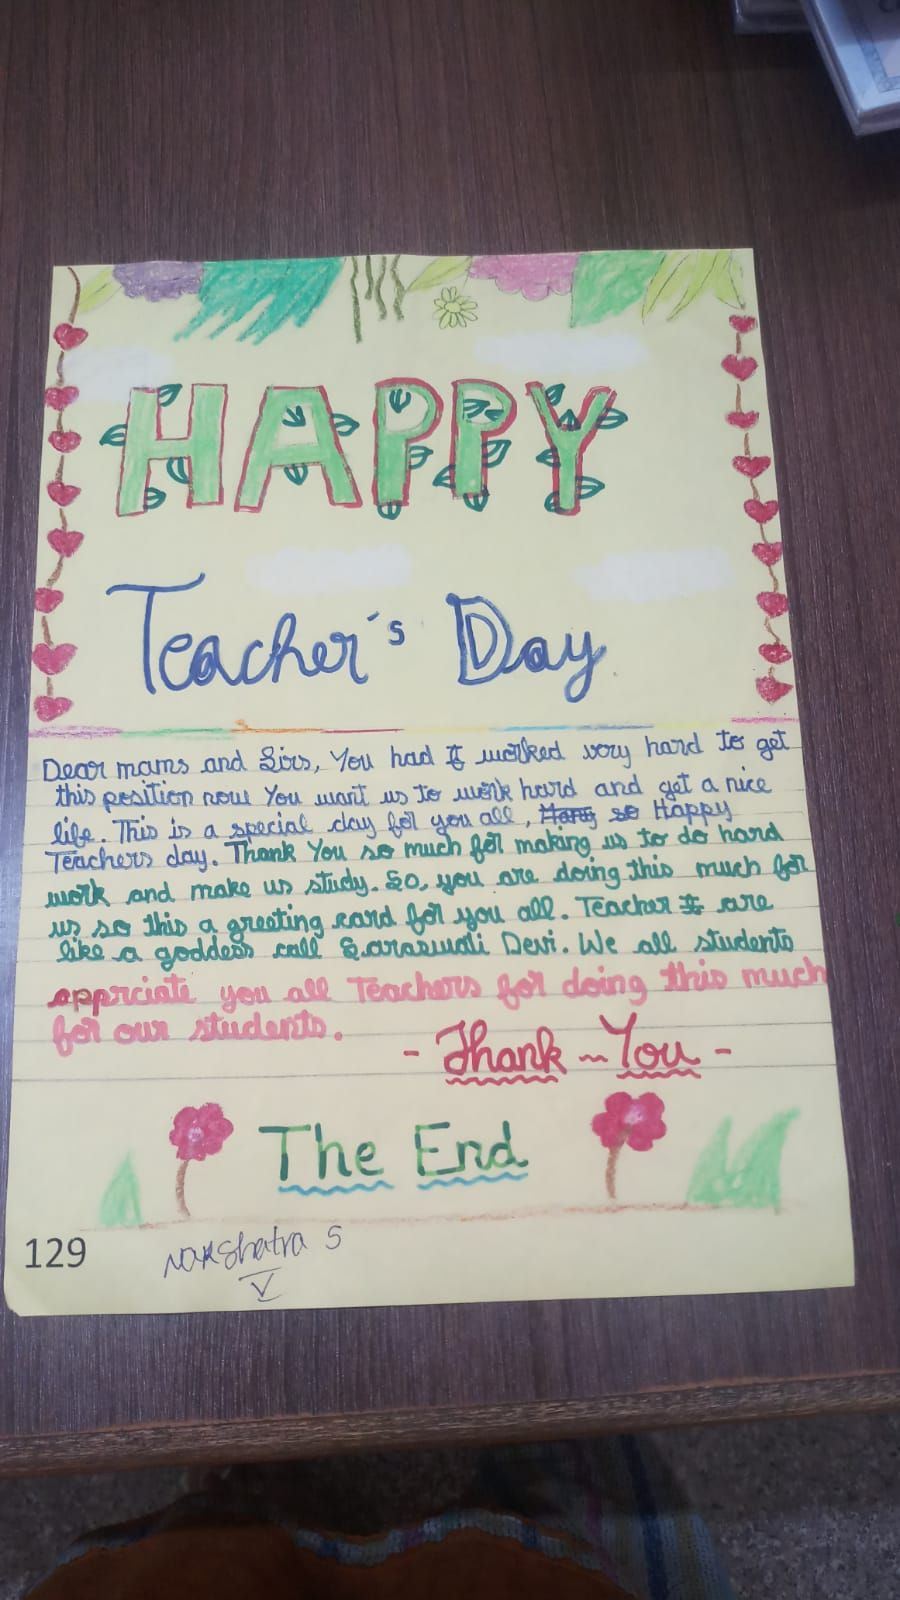 HAPPY
Teacher's Day
Dear mams and Sirs, You had worked very hard to get
this position now You want us to work hard and get a nice
life. This is a special day for you all, so Happy
Teachers day. Thank You so much for making us to do hard
work and make us study. So, you are doing this much for
us so this a greeting card for you all. Teacher are
like a goddess call Saraswati Devi. We all students
apprciate you all Teachers for doing this much
for our students.
- Thank ~ You -
The End
129
Nakshatra S
V